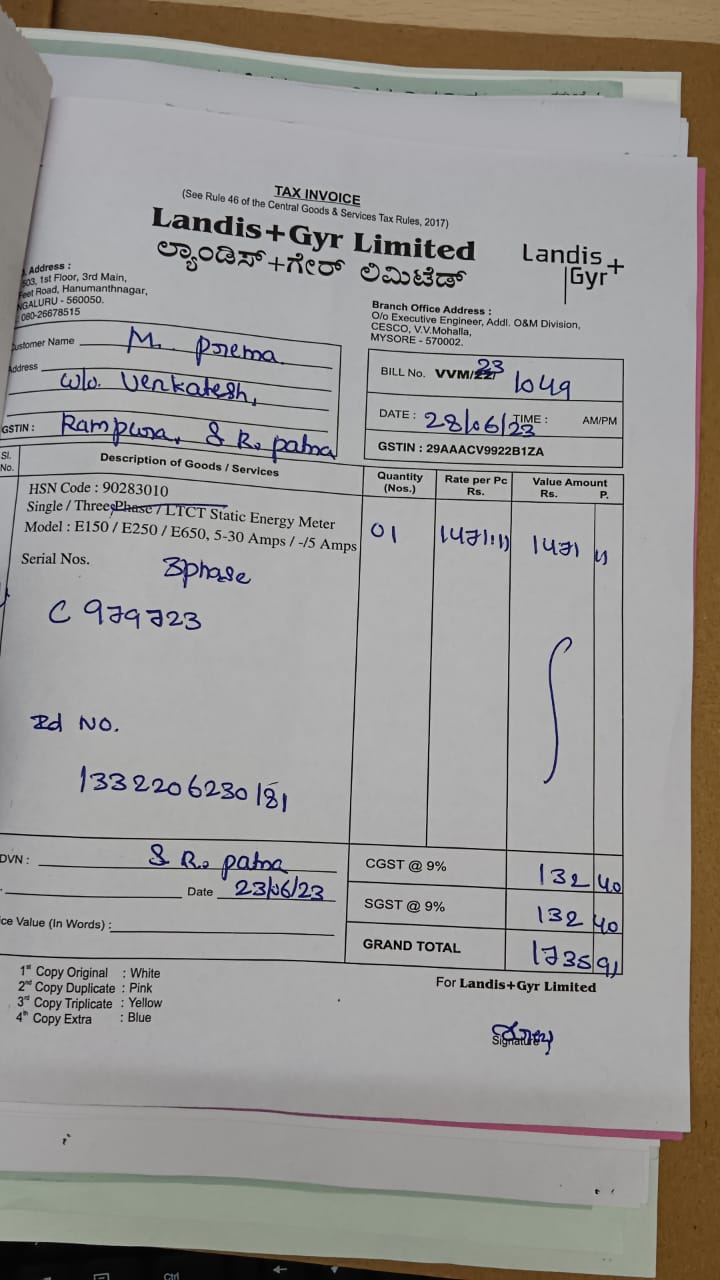 TAX INVOICE
(See Rule 46 of the Central Goods & Services Tax Rules, 2017)
Landis+Gyr Limited
ಲ್ಯಾಂಡಿಸ್+ಗೇರ್ ಲಿಮಿಟೆಡ್
Landis+
Gyr
Address :
503, 1st Floor, 3rd Main,
Feet Road, Hanumanthnagar,
NGALURU - 560050.
080-26678515
Branch Office Address :
O/o Executive Engineer, Addl. O&M Division,
CESCO, V.V.Mohalla,
MYSORE - 570002.
Customer Name M. Prema
Address W/o. Venkatesh,
GSTIN : Rampura, S R. patna
BILL No. VVM/22/ 23 1049
DATE : 28/06/23 TIME : AM/PM
GSTIN : 29AAACV9922B1ZA
Sl. No. Description of Goods / Services Quantity (Nos.) Rate per Pc Rs. Value Amount Rs. P.
HSN Code : 90283010
Single / Three Phase / LTCT Static Energy Meter
Model : E150 / E250 / E650, 5-30 Amps / -/5 Amps 01 1471.11 1471 11
Serial Nos. 3phase
C 979723
Id No.
1332206230181
DVN : S R. patna
Date 23/06/23
CGST @ 9% 132 40
SGST @ 9% 132 40
GRAND TOTAL 1735 91
ce Value (In Words) :
1st Copy Original : White
2nd Copy Duplicate : Pink
3rd Copy Triplicate : Yellow
4th Copy Extra : Blue
For Landis+Gyr Limited
Signature
Ctrl